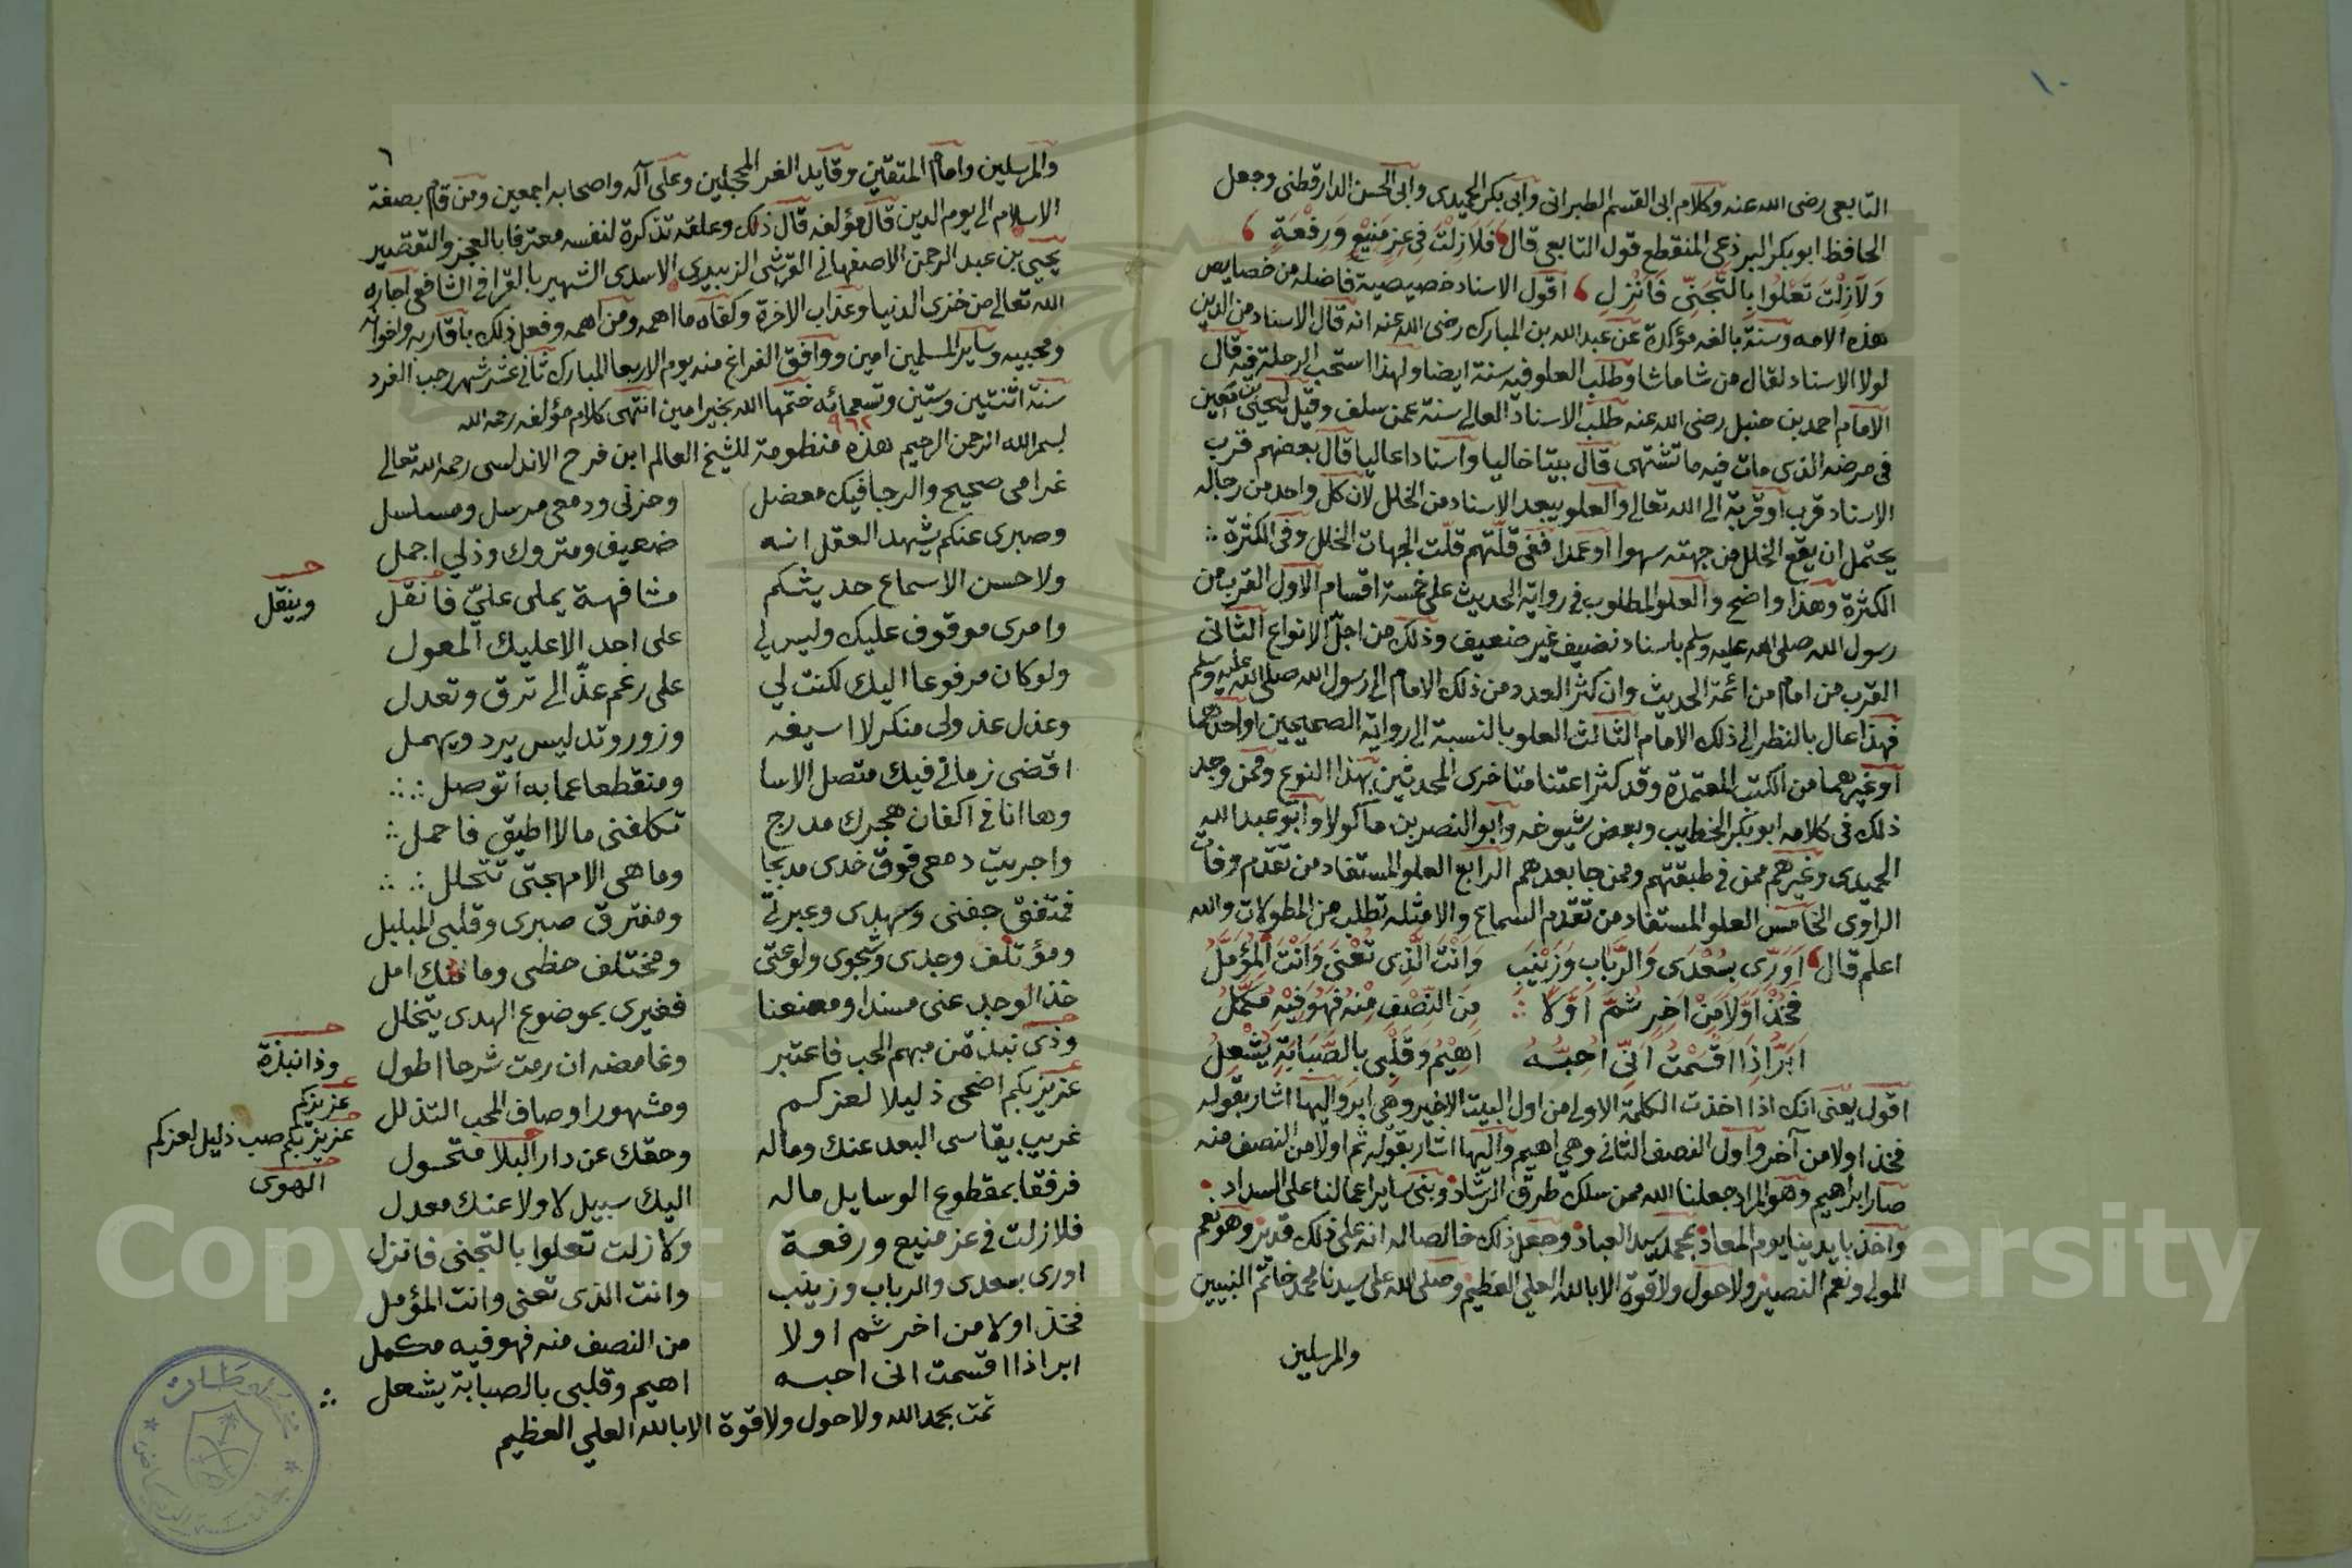 ١٠
التابعي رضى الله عنه وكلام ابى القسم الطبرانى وأبى بكر الحميدى وأبى الحسن الدارقطنى وجعل
الحافظ ابو بكر البرذعى المنقطع قول التابعى قال فَلاَ زِلْتَ فى عِزٍ مَنِيْعٍ وَرِفْعَةٍ
وَلاَزِلْتَ تَعْلُوا بِالتَّجَنّى فَاَنْزِلِ اقول الاسناد خصيصية فاضلة من خصايص
هذه الامه وسنة بالغه مؤكدة عن عبد الله بن المبارك رضى الله عنه انه قال الاسناد من الدين
لولا الاسناد لقال من شا ما شا وطلب العلو فيه سنة ايضا ولهذا استحب الرحلة فيه قال
الامام احمد بن حنبل رضى الله عنه طلب الاسناد العالى سنة عمن سلف وقيل ليحيى بن معين
فى مرضه الذى مات فيه ما تشتهى قال بيتا خاليا واسنادا عاليا قال بعضهم قرب
الاسناد قرب او قربة الى الله تعالى والعلو يبعد الاسناد من الخلل لان كل واحد من رجاله
يحتمل ان يقع الخلل من جهته سهوا او عمدا ففى قلتهم قلّت الجهات الخلل وفى الكثرة
الكثرة وهذا واضح والعلو المطلوب فى رواية الحديث على خمسة اقسام الاول القرب من
رسول الله صلى الله عليه وسلم باسناد نضيف غير ضعيف وذلك من اجلّ الانواع الثانى
القرب من امام من ائمة الحديث وان كثر العدد من ذلك الامام الى رسول الله صلى الله عليه وسلم
فهذا عال بالنظر الى ذلك الامام الثالث العلو بالنسبة الى رواية الصحيحين او احدهما
او غيرهما من الكتب المعتمدة وقد كثر اعتنا متاخرى المحدثين بهذا النوع وممن وجد
ذلك فى كلامه ابو بكر الخطيب وبعض شيوخه وابو النصر بن ماكولا وابو عبد الله
الحميدى وغيرهم ممن فى طبقتهم وممن جا بعدهم الرابع العلو المستفاد من تقدم وفات
الراوى الخامس العلو المستفاد من تقدم السماع والامثله تطلب من المطولات والله
اعلم قال اُوَرِّى بِسُعْدَى وَالرَّبَابِ وَزَيْنَبِ وَاَنْتَ الَّذِى تُعْنَى وَاَنْتَ الْمُؤَمَّلُ
فَخُذْ اَوَّلاَ مِنْ اخِرٍ ثُمَّ اوَّلاً مِنَ النِّصْفِ مِنْهُ فَهُوَ فِيْهِ مُكَمَّلُ
اَبَرُّ اِذَا اَقْسَمْتُ اَنِّى اُحِبُّهُ اَهِيْمُ وَقَلْبِى بالصَّبَابَةِ يُشْعَلُ
اقول يعنى انك اذا اخذت الكلمة الاولى من اول البيت الاخير وهى ابر واليها اشار بقوله
فخذ اولا من آخر واول النصف الثانى وهى اهيم واليها اشار بقوله ثم اولا من النصف منه
صار ابراهيم وهو المراد جعلنا الله ممن سلك طرق الرشاد وبنى ساير اعمالنا على السداد
واخذ بايدينا يوم المعاد بمحمد سيد العباد وجعل ذلك خالصا له انه على ذلك قدير وهو نعم
المولى ونعم النصير ولا حول ولا قوة الا بالله العلى العظيم وصلى الله على سيدنا محمد خاتم النبيين
والمرسلين
٦
والمرسلين وامام المتقين وقايد الغر المحجلين وعلى آله واصحابه اجمعين ومن قام بصفة
الاسلام الى يوم الدين قال مؤلفه قال ذلك وعلقه تذكرة لنفسه معترفا بالعجز والتقصير
يحيى بن عبد الرحمن الاصفهانى القرشى الزبيدى الاسدى الشهير بالقرافى الشافعى اجاره
الله تعالى من خزى الدنيا وعذاب الاخرة وكفاه ما اهمه ومن اهمه وفعل ذلك باقاربه واخوانه
ومحبيه وساير المسلمين امين ووافق الفراغ منه يوم الاربعا المبارك ثانى عشر شهر رجب الفرد
سنة اثنتين وستين وتسعمائه ختمها الله بخير امين انتهى كلام مؤلفه رحمه الله
٩٦٢
بسم الله الرحمن الرحيم هذه منظومة للشيخ العالم ابن فرح الاندلسى رحمه الله تعالى
غرامى صحيح والرجا فيك معضل وحزنى ودمعى مرسل ومسلسل
وصبرى عنكم يشهد العقل انه ضعيف ومتروك وذلي اجمل
ولا حسن الا سماع حديثكم مشافهة يملى عليّ فانقل
وينقل
وامرى موقوف عليك وليس لي على احد الا عليك المعول
ولو كان مرفوعا اليك لكنت لي على رغم عذّالى ترق وتعدل
وعذل عذولى منكر لا اسيغه وزور وتدليس يرد ويهمل
اقضى زمانى فيك متصل الاسا ومنقطعا عما به اتوصل
وها انا فى اكفان هجرك مدرج تكلفنى ما لا اطيق فاحمل
واجريت دمعى فوق خدى مدبجا وما هى الا مهجتى تتحلل
فمتفق جفنى وسهدى وعبرتى ومفترق صبرى وقلبى المبلبل
ومؤتلف وجدى وشجوى ولوعتى ومختلف حظى وما منك امل
خذ الوجد عنى مسندا ومعنعنا فغيرى بموضوع الهدى يتخلل
وذى نبذة من مبهم الحب فاعتبر وغامضه ان رمت شرحا اطول
وذا نبذة
عزيز بكم اضحى ذليلا لعزكم ومشهور اوصاف المحب التذلل
عزيزكم
عزيز بكم صب ذليل لعزكم
غريب يقاسى البعد عنك وماله وحقك عن دار البلا متحول
الهوى
فرفقا بمقطوع الوسايل ماله اليك سبيل لا ولا عنك معدل
فلا زلت فى عز منيع ورفعة ولا زلت تعلوا بالتجنى فانزل
اورى بسعدى والرباب وزينب وانت الذى تعنى وانت المؤمل
فخذ اولا من اخر ثم اولا من النصف منه فهو فيه مكمل
ابر اذا اقسمت انى احبه اهيم وقلبى بالصبابة يشعل
تمت بحمد الله ولا حول ولا قوة الا بالله العلي العظيم
Copyright © King Saud University